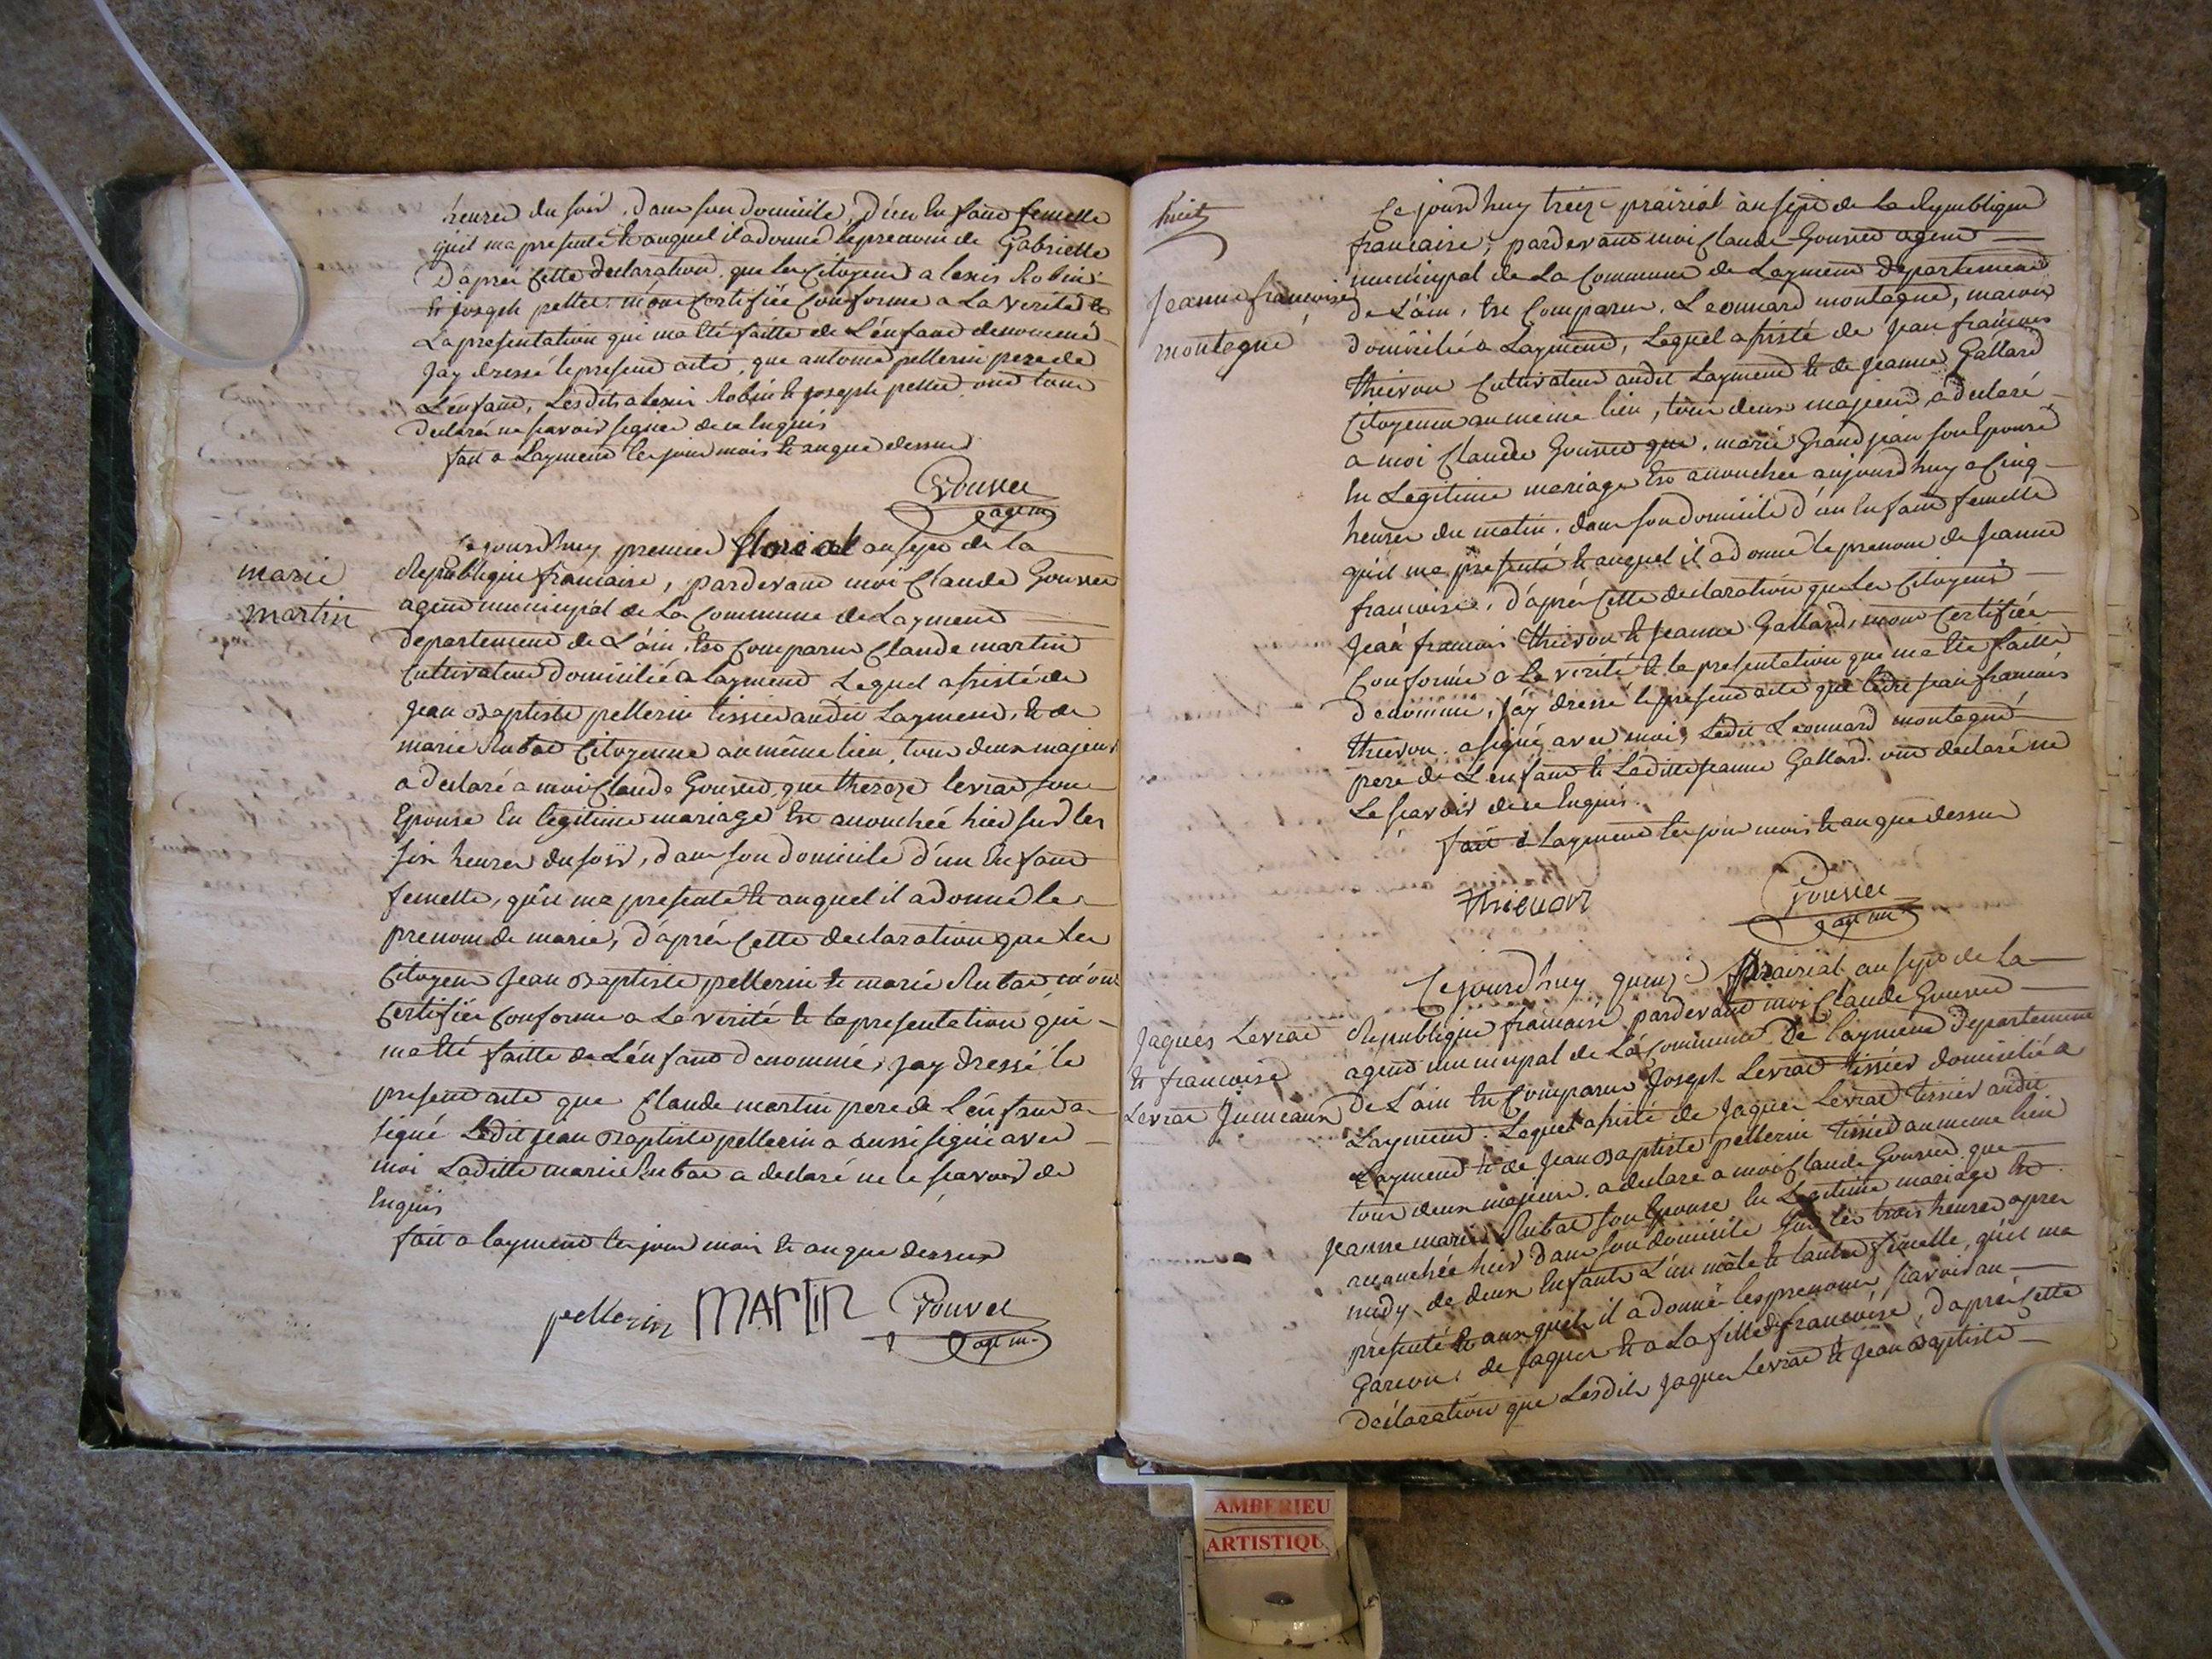 heures du soir, dans son domicile, d'un Enfant femelle
qu'il ma presenté & auquel il a donné le prenom de Gabrielle
D'après Cette declaration que les Citoyens alexis Robin
& joseph pellet m'ont Certifiée Conforme a La verité &
La presentation qui ma Eté faitte de L'énfant denommé
jay dressé le present acte, que antoine pellerin pere de
L'énfant, Lesdits alexis Robin & joseph pellet ont tous
declarés ne scavoir signer de ce Enquis
fait a Layment les jour mois & an que dessus
Gouvet
agt m
Cejourd'huy premier floreal an sept de la
marie
martin
Republique francaise, pardevant moi Claude Gouvet
agent municipal de La Commune de Layment
departement de L'ain, Est Comparu Claude martin
Cultivateur domicilié a layment Lequel assisté de
jean Baptiste pellerin tissier audit Layment, & de
marie Rubat Citoyenne au même lieu, tous deux majeurs
a declaré a moi Claude Gouvet, que thereze levrat son
Epouse En legitime mariage Est accouchée hier sur les
six heures du soir, dans son domicile d'un Enfant
femelle, qu'il ma presenté & auquel il a donné le
prenom de marie, d'après Cette declaration que les
Citoyens jean Baptiste pellerin & marie Rubat m'ont
Certifiée Conforme a La verité & la presentation qui
ma Eté faitte de L'énfant denommé, jay dressé le
present acte que Claude martin pere de L'énfant a
signé Ledit jean Baptiste pellerin a aussi signé avec
moi Laditte marie Rubat a declaré ne le scavoir de
Enquis
fait a layment les jour mois & an que dessus
pellerin MARTIN Gouvet
agt m.
huit
Cejourd'huy treize prairial an sept de La Republique
francaise, pardevant moi Claude Gouvet agent
municipal de La Commune de Layment departement
Jeanne francoise
montagné
de L'ain, Est Comparu Leonnard montagné, macon
domicilié a Layment, Lequel assisté de jean francois
thievon Cultivateur audit Layment & de jeanne Gallard
Citoyenne au meme lieu, tous deux majeurs, a declaré
a moi Claude Gouvet que, marie Grandjean son Epouse
En Legitime mariage Est accouchée aujourd'huy a Cinq
heures du matin, dans son domicile d'un Enfant femelle
qu'il ma presenté & auquel il a donné le prenom de jeanne
francoise, d'après Cette declaration que les Citoyens
jean francois thievon & jeanne Gallard, mont Certifiée
Conforme a La verité & la presentation que ma Eté faitte
denommé, jay dressé le present acte que ledit jean francois
thievon a signé avec moi, Ledit Leonnard montagné
pere de L'enfant & Laditte jeanne Gallard ont declaré ne
Le scavoir de ce Enquis.
fait a Layment les jour mois & an que dessus
thievon Gouvet
agt m
Cejourd'huy quinze prairial an sept de La
Jaques Levrat
& francoise
Levrat Jumeaux
Republique francaise pardevant moi Claude Gouvet
agent municipal de La Commune De layment Departement
De L'ain Est Comparu Joseph Levrat tissier domicilié a
Layment. Lequel assisté de Jaques Levrat tissier audit
Layment & de Jean Baptiste pellerin tissier au meme lieu
tous deux majeurs, a declaré a moi Claude Gouvet que
Jeanne marie Rubat son Epouse En Legitime mariage Est
accouchée hier Dans son domicile sur les trois heures apres
midy de deux Enfants L'un mâle & l'autre femelle, qu'il ma
presenté & auxquels il a donné les prenoms scavoir au
Garcon, de jaques & a La fille de francoise, d'après Cette
déclaration que Lesdits Jaques Levrat & Jean Baptiste
AMBERIEU
ARTISTIQU